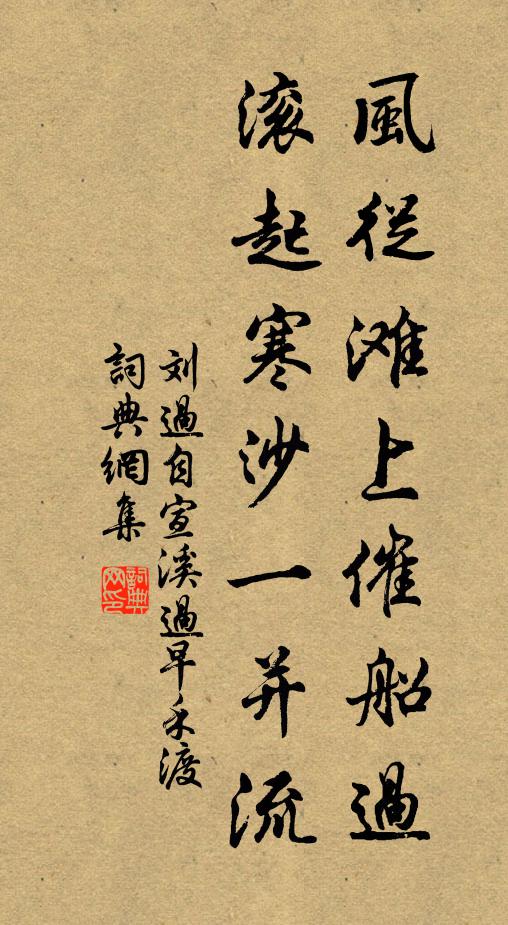 風從滩上催船過
滚起寒沙一并流
刘過自宣溪過早禾渡
詞典網集
詞典
网印